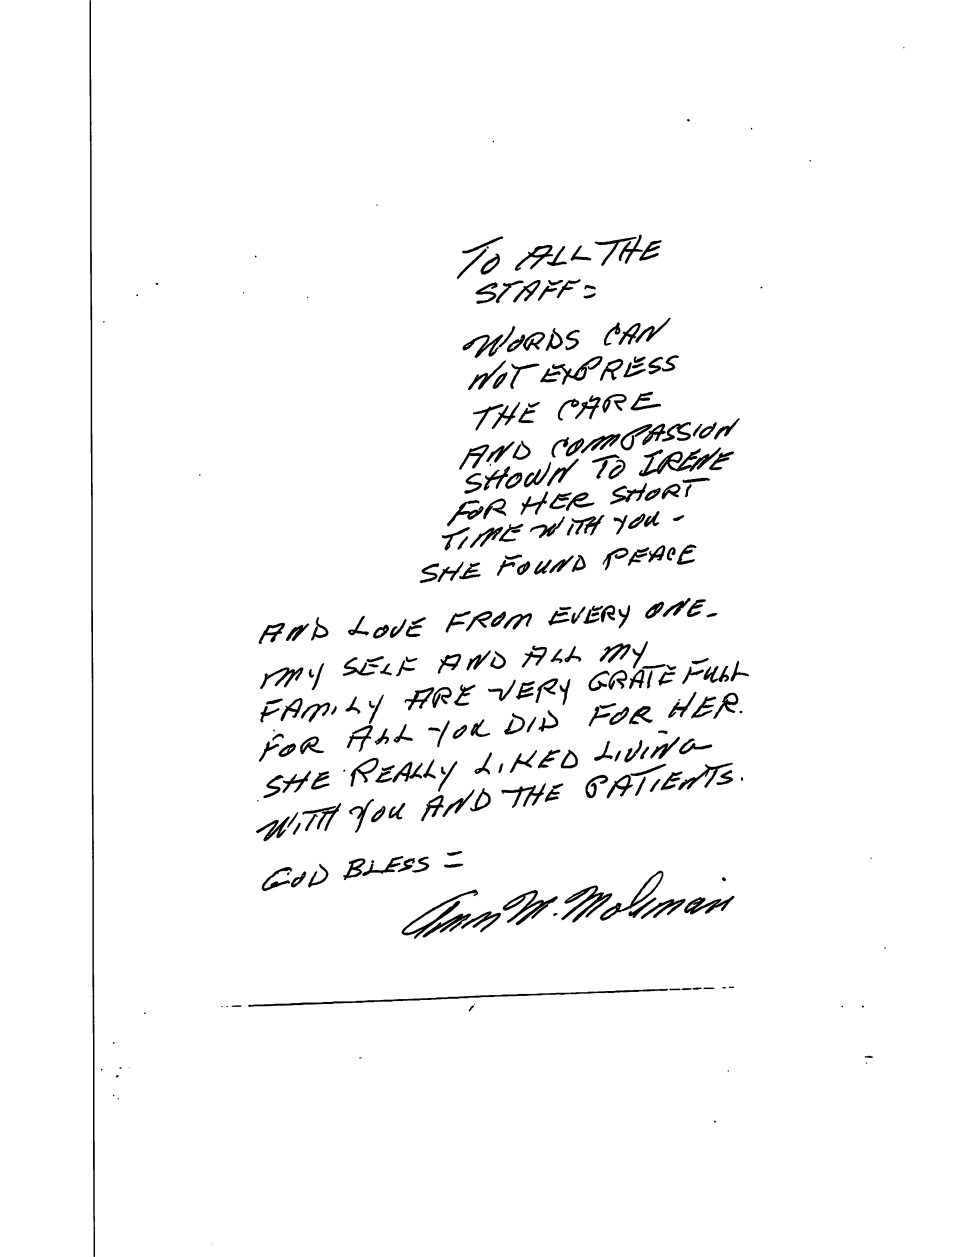 TO ALL THE
STAFF =
WORDS CAN
NOT EXPRESS
THE CARE
AND COMPASSION
SHOWN TO IRENE
FOR HER SHORT
TIME WITH YOU -
SHE FOUND PEACE
AND LOVE FROM EVERY ONE -
MY SELF AND ALL MY
FAMILY ARE VERY GRATEFULL
FOR ALL YOU DID FOR HER.
SHE REALLY LIKED LIVING
WITH YOU AND THE PATIENTS.
GOD BLESS =
Ann M.